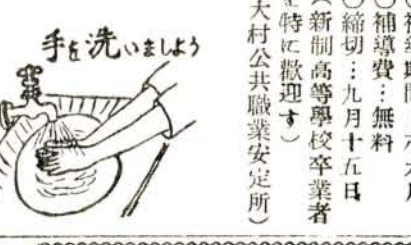 〇補導費…無料
〇締切…九月十五日
(新制高等學校卒業者
を特に歡迎す)
大村公共職業安定所)
手を洗いましよう